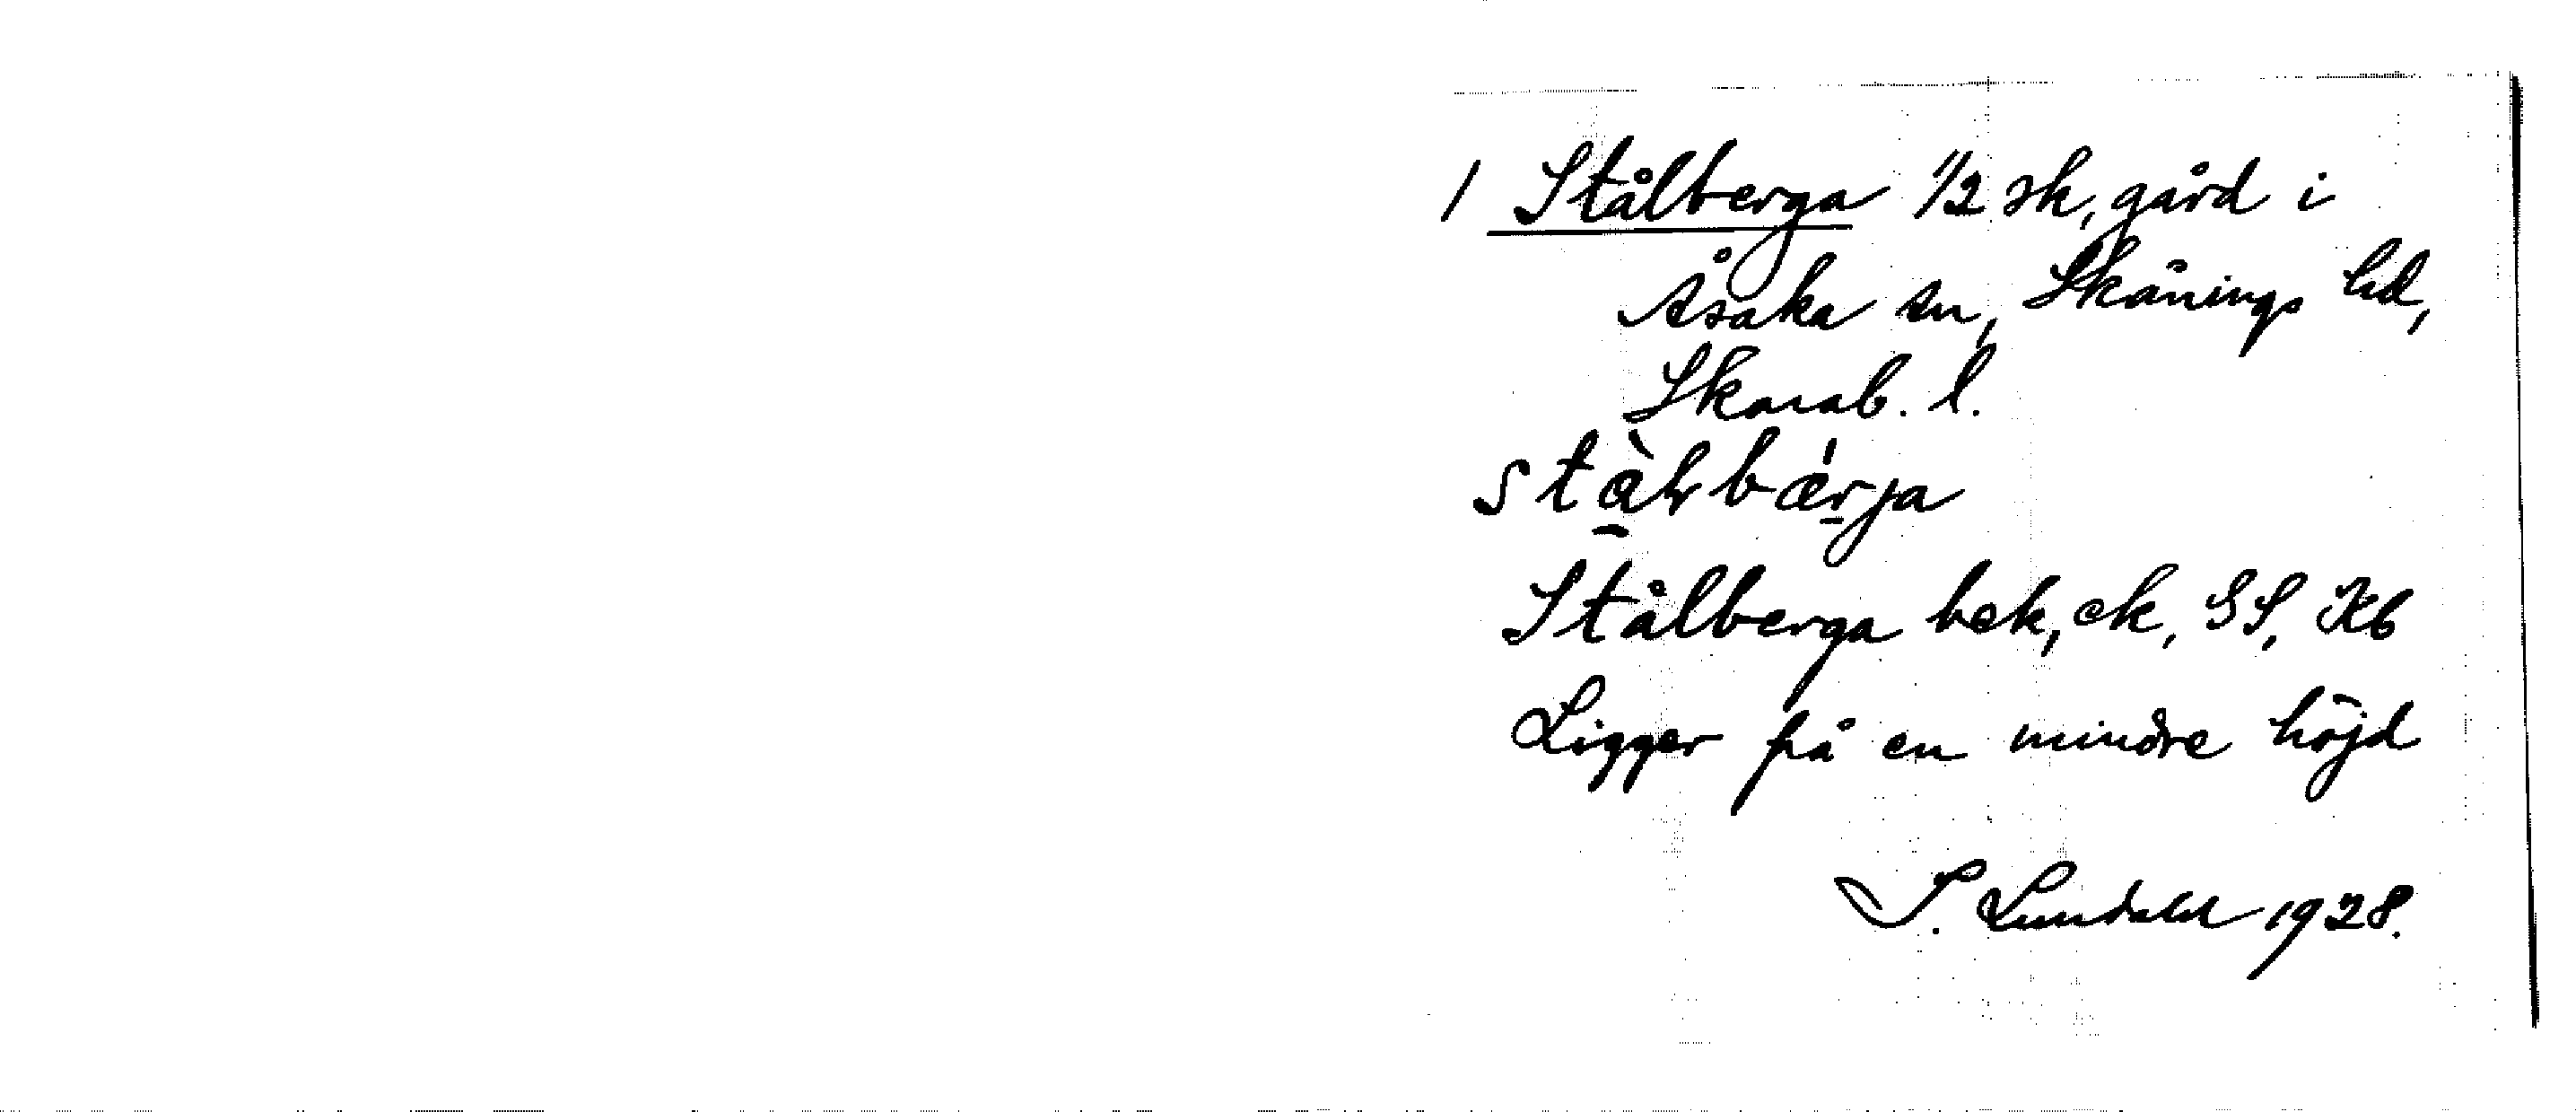 1 Stålberga 1/2 sk, gård i
Åsaka sn, Skånings hd,
Skarab. l.
Stålberga bek, ek, GS, Kb
Ligger på en mindre höjd
S. Lundahl 1928.